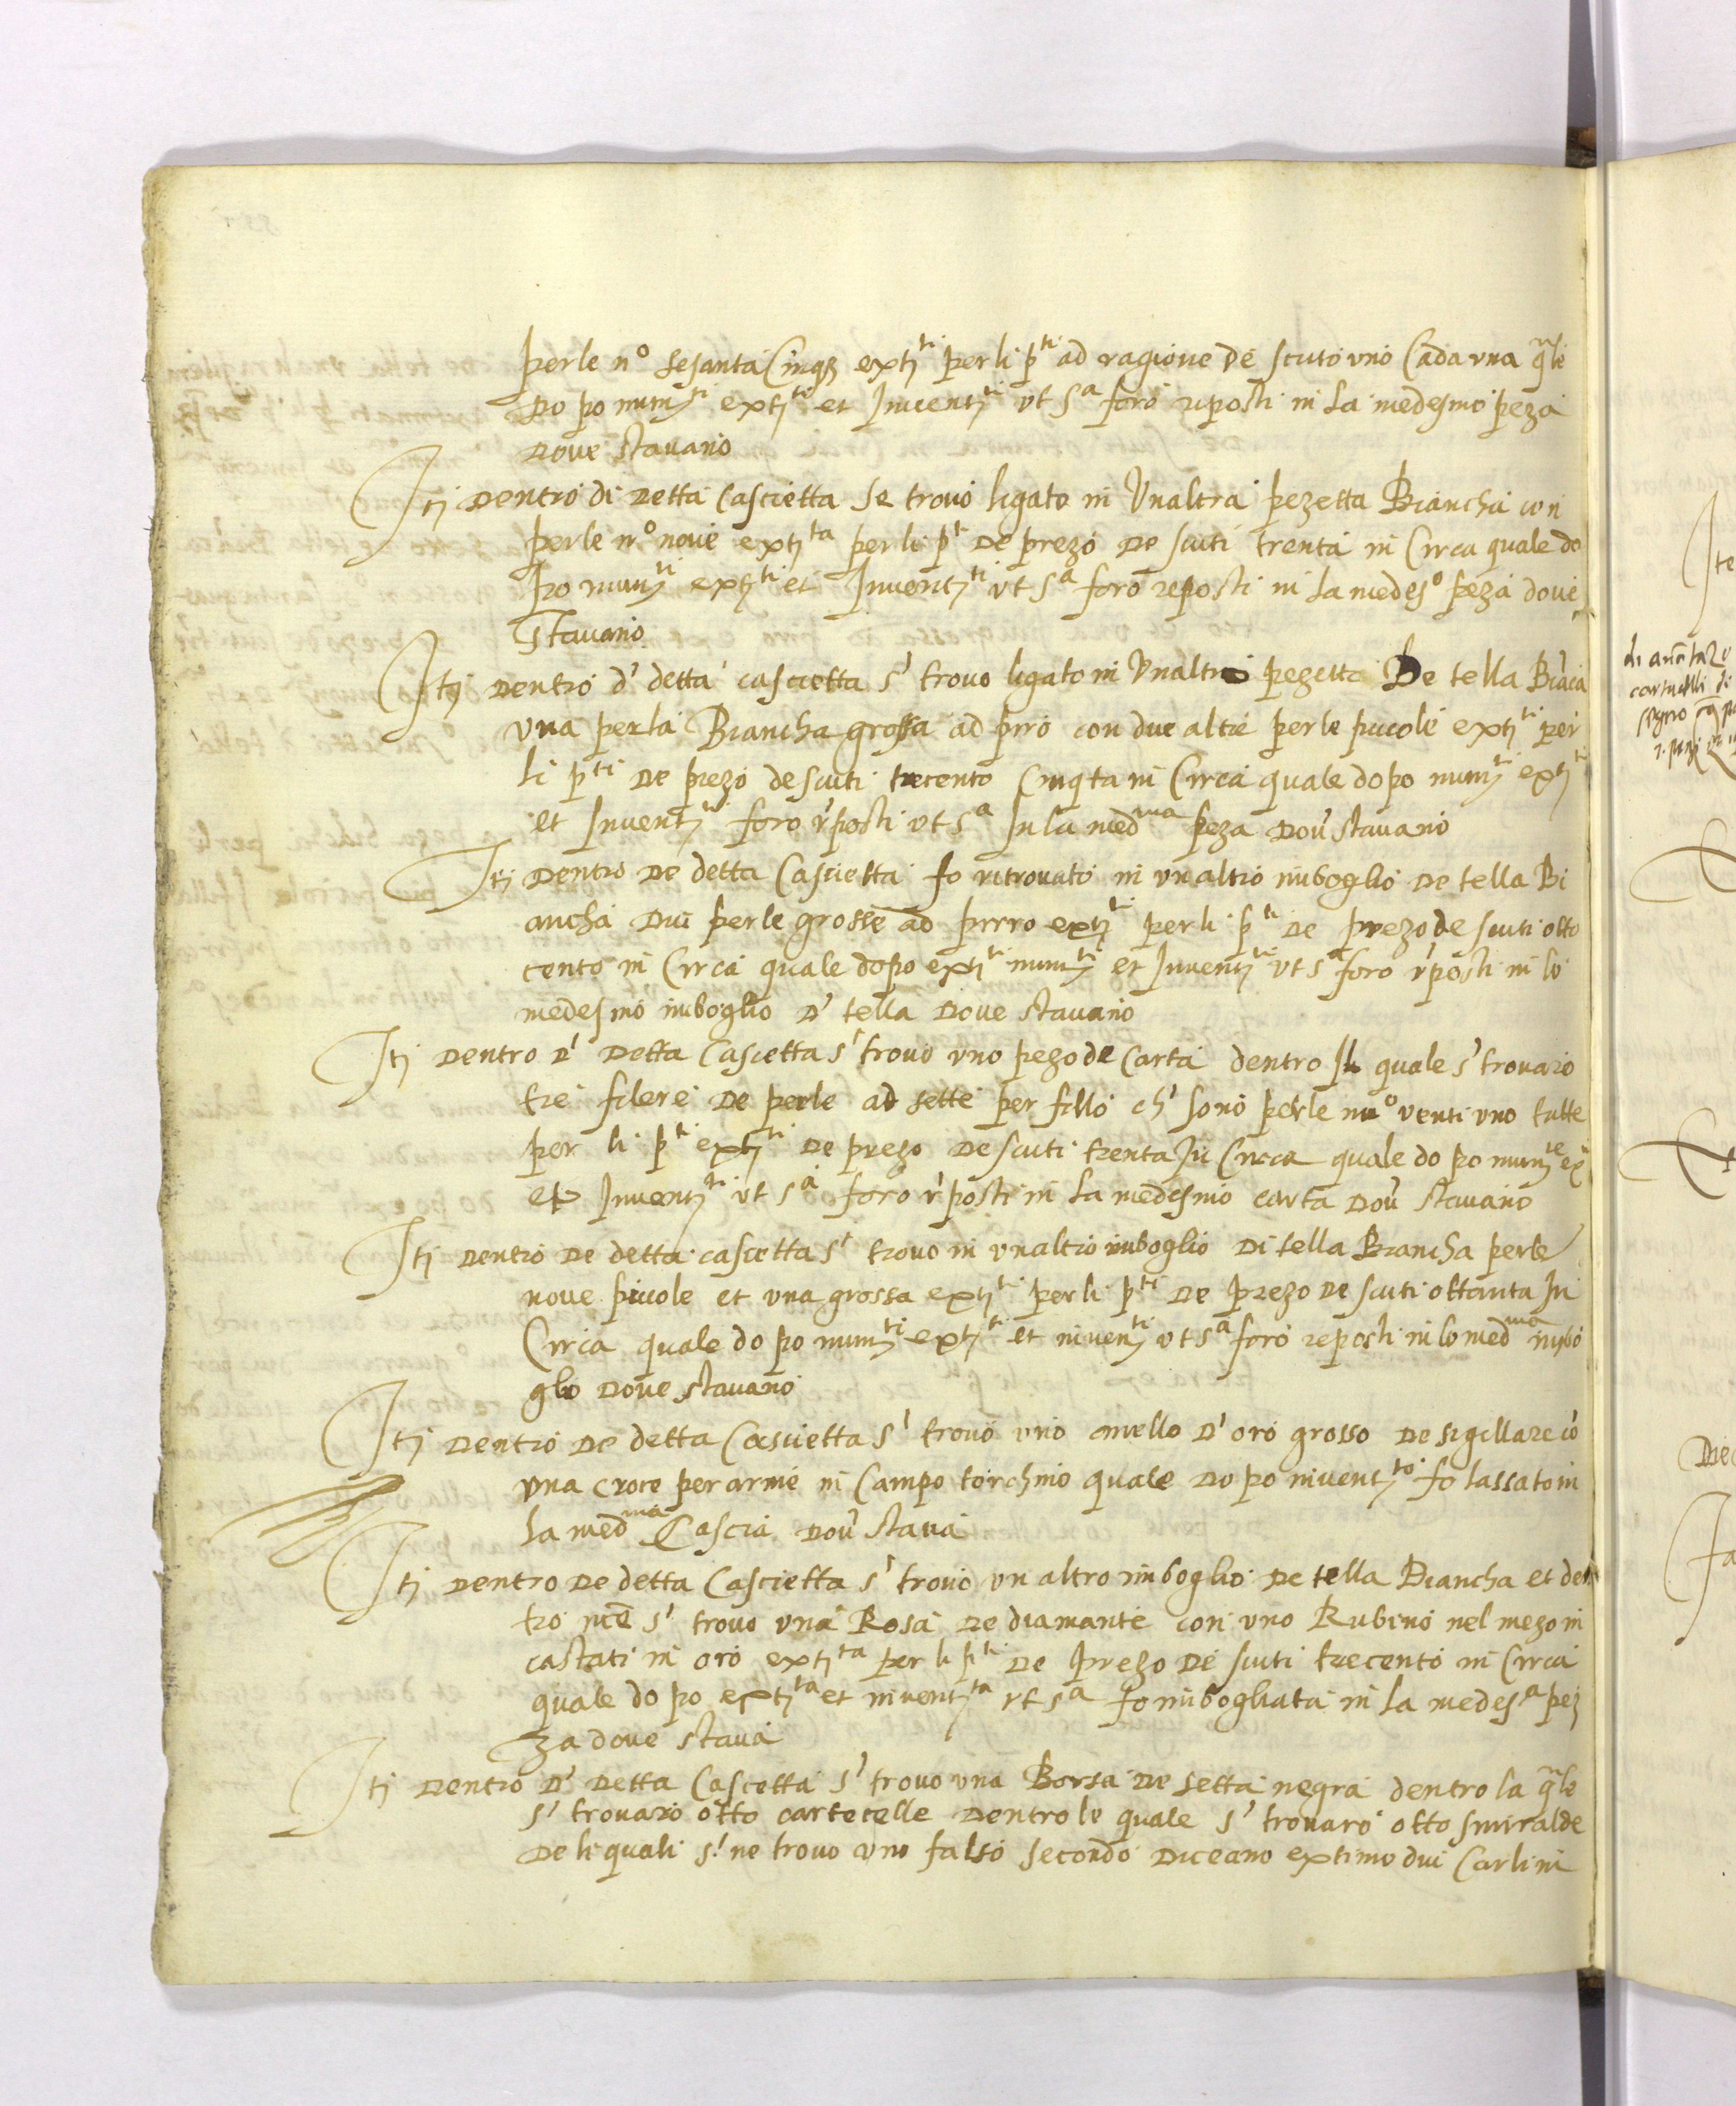 perle n° sesanta Cinq; extj^ti per li p^ti ad ragione de scuto uno Cada una q̃le
Do po numj^ti extj^ti et Inventj^ti ut s^a foro riposti in La medesmo peza
Dove stavano
Itj Dentro di Detta Cascietta se trovo ligato in Unaltra pezetta Biancha con
perle n° nove extj^ta per li p^ti De prezo De scuti trenta in Circa quale do
po numj^ti extj^ti et Inventj^ti ut s^a foro reposti in La medes° peza dove
stavano
Itj Dentro d' detta cascietta s' trovo ligato in Unaltro pezetto De tella Biãca
una perla Biancha grossa ad pirro con due altre perle piccole extj^ti per
li p^ti De prezo de scuti trecento Cinq^ta in Circa quale dopo numj^ti extj^ti
et Inventj^ti foro r'posti ut s^a In La med^ma peza Dov' stavano
Itj Dentro De detta Cascietta fo ritrovato in unaltro imboglio De tella Bi
ancha Dui perle grosse ad pirro extj^ti per li p^ti De prezo de scuti otto
cento in Circa quale dopo extj^ti numj^ti et Inventj^ti ut s^a foro r'posti in lo
medesmo imboglio D' tella Dove stavano
Itj Dentro D' Detta Cascetta s' trovo uno pezo de Carta dentro Il quale s' trovaro
tre filere De perle ad sette per fillo ch' sono perle nu° venti uno tutte
per li p^ti extj^ti De prezo De scuti trenta In Circa quale do po numj^te ex^ti
et Inventj^ti ut s^a foro r'posti in La medesmo carta Dov' stavano
Itj Dentro De detta cascetta s' trovo in unaltro imboglio Di tella Biancha perle
nove picole et una grossa extj^ti per li p^ti De prezo De scuti ottanta In
Circa quale do po numj^ti extj^ti et inventj^ti ut s^a foro reposti in lo med^mo imbo
glio Dove stavano
Itj Dentro De detta Cascietta s' trovo uno anello D' oro grosso De sigillare cõ
una croce per arme in Campo torchino quale Do po inventj^to fo lassato in
La med^ma Cascia Dov' stava
Itj Dentro De detta Cascietta s' trovo un altro imboglio De tella Biancha et den
tro nce s' trovo una Rosa De diamante con uno Rubino nel mezo in
castati in oro extj^ta per li p^ti De prezo De scuti trecento in Circa
quale do po extj^ta et inventj^ta ut s^a fo imbogliata in La medes^a pez
za dove stava
Itj Dentro D' Detta Cascetta s' trovo una Borsa De setta negra dentro la q̃le
s' trovaro otto cartecelle Dentro le quale s' trovaro otto smiralde
De li quali s' ne trovo uno falso secondo Diceano extimo dui Carlini